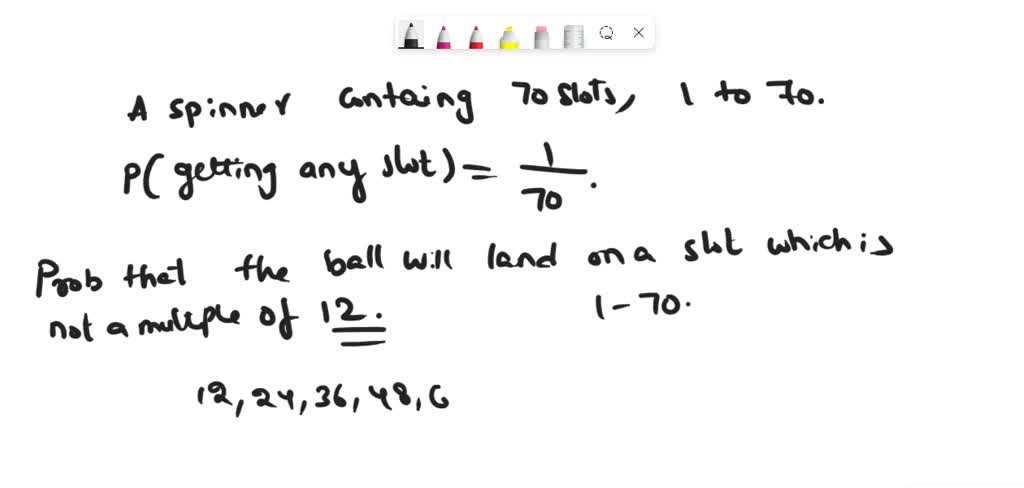 A spinner containg 70 slots, 1 to 70.
P( getting any slot ) = 1/70.
Prob that the ball will land on a slot which is
not a multiple of 12. 1 - 70.
12, 24, 36, 48, 6